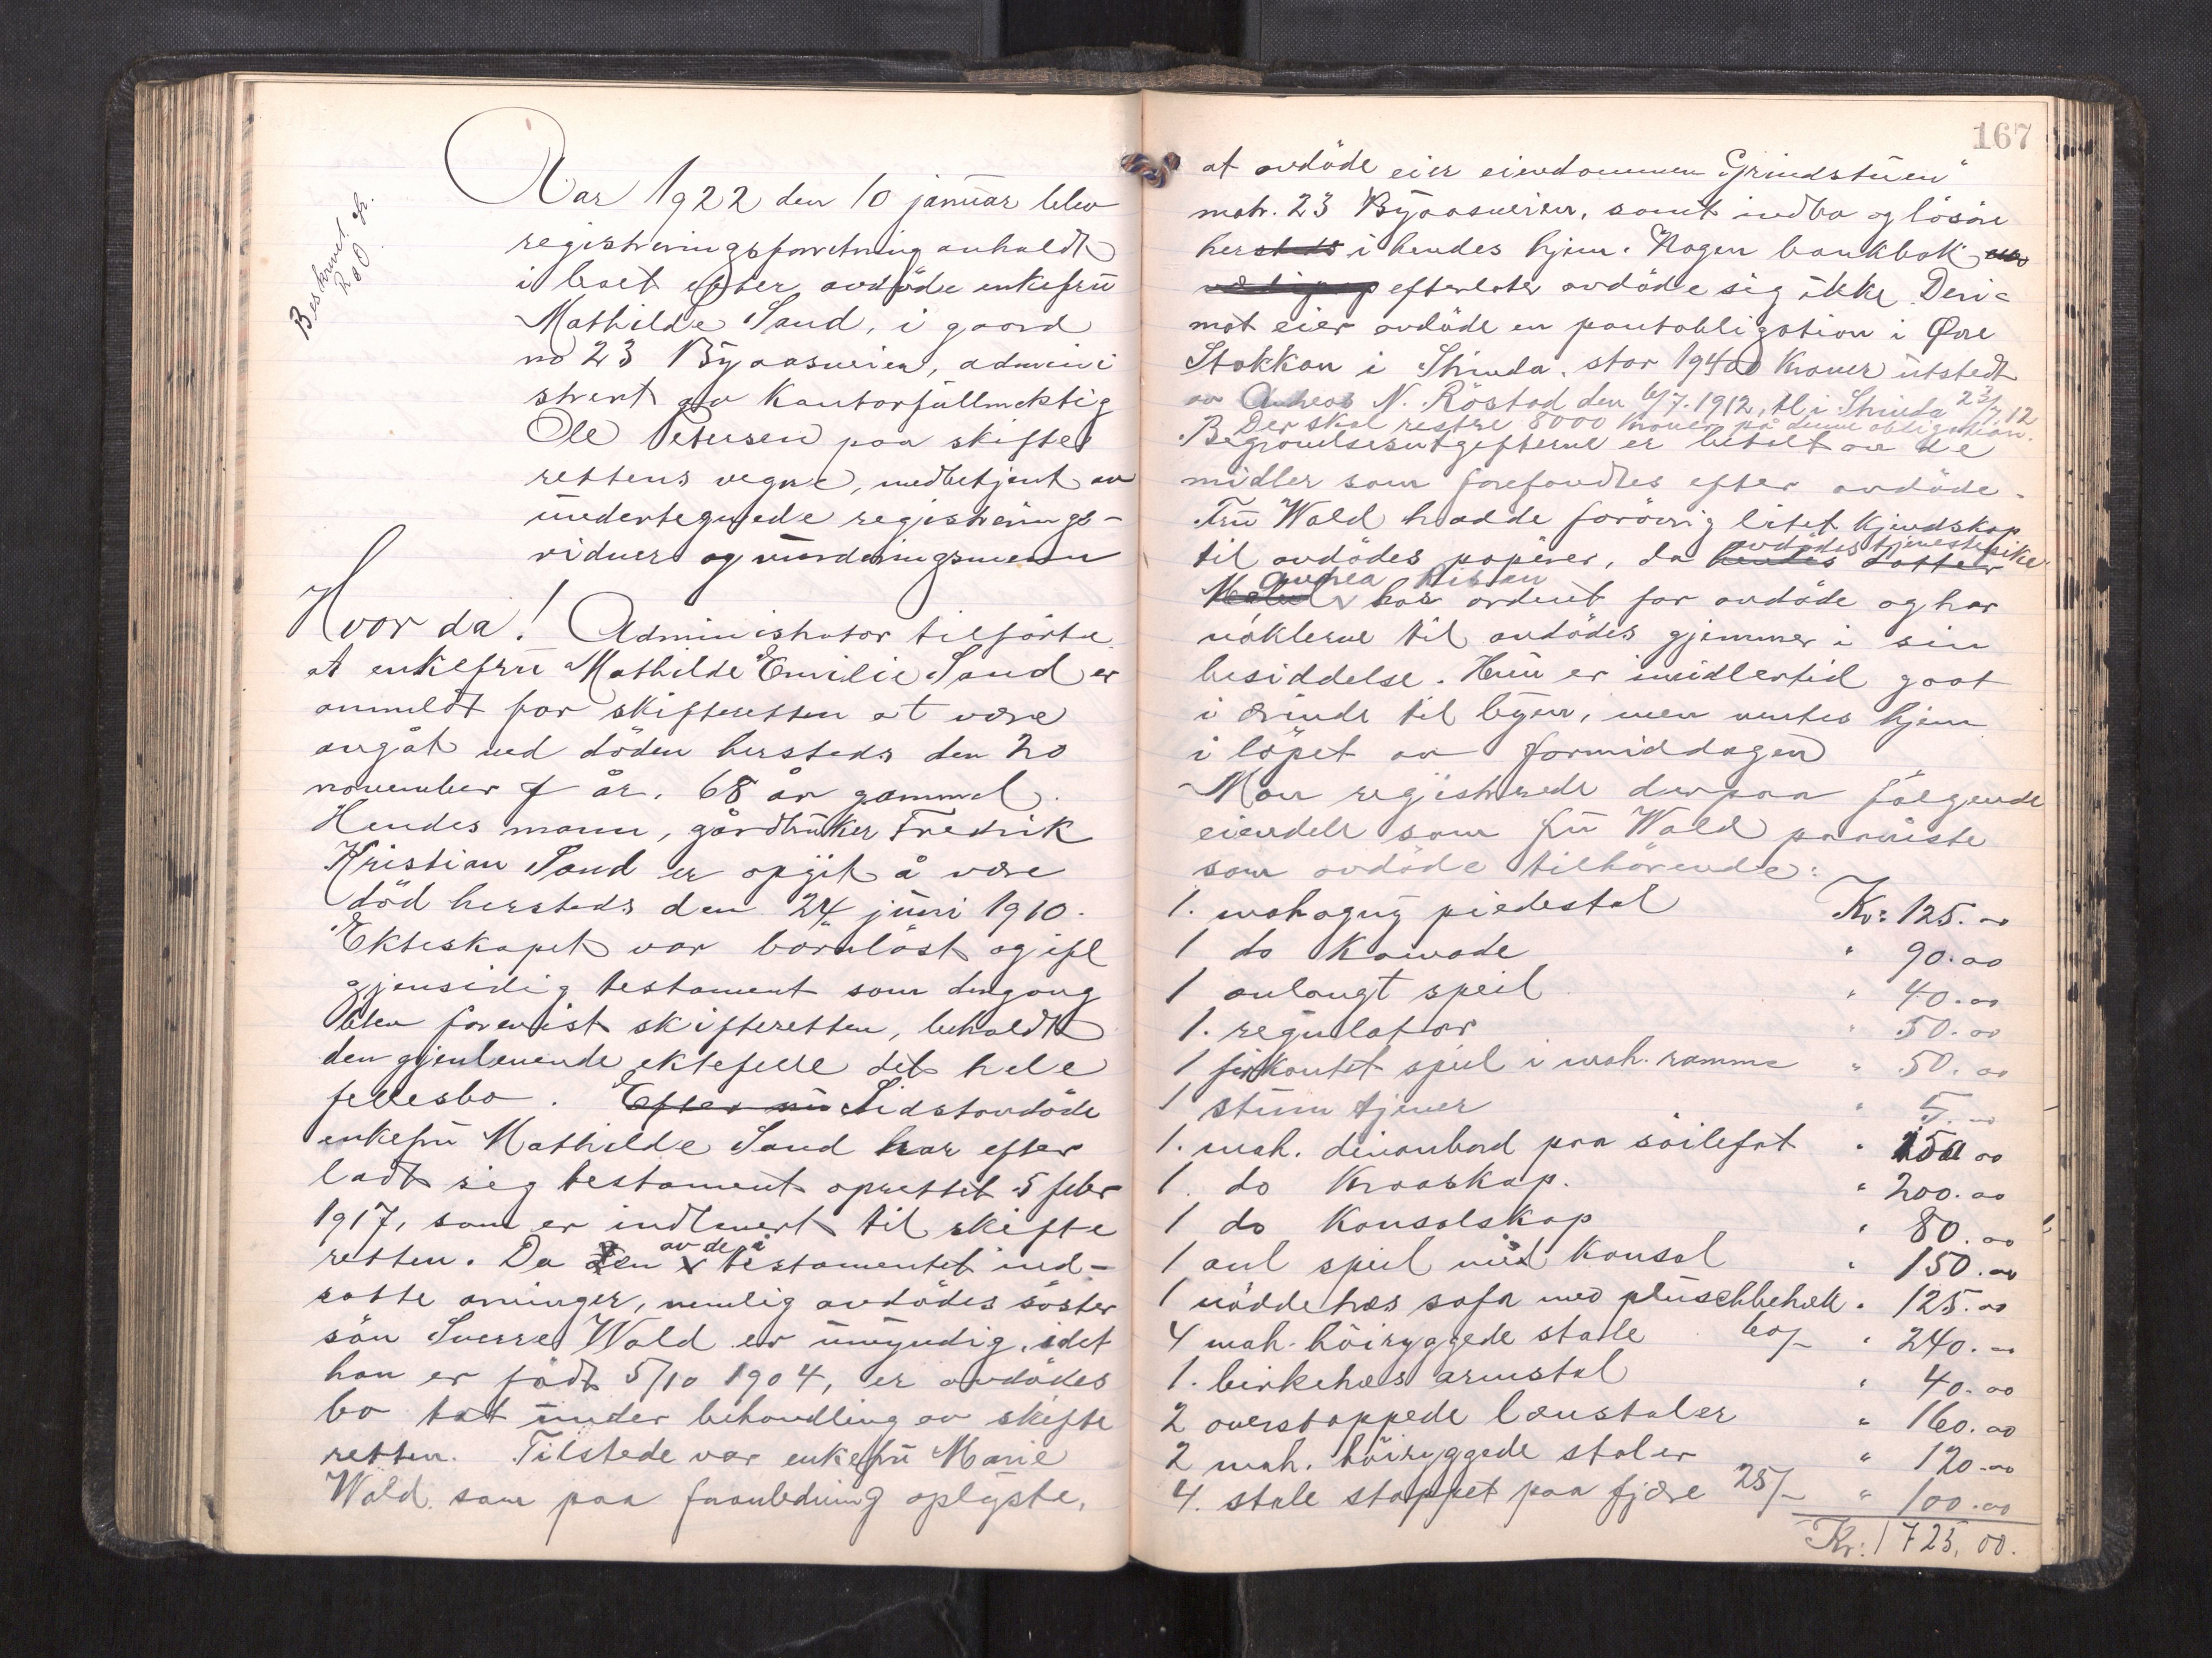 Beskrevet fr.
Aar 1922 den 10 januar blev
registreringsforretning avholdt
i boet efter avdöde enkefru
Mathilde Sand, i gaard
no 23 Byaasveien, admini
strert av kontorfullmektig
Ole Petersen paa skifte
rettens vegne, medbetjent av
undertegnede registrerings-
vidner og vurderingsmenn
Hvorda! Administrator tilförte
at enkefru Mathilde Emilie Sand er
anmeldt for skifteretten at være
avgåt ved döden hersteds den 20
november f år. 68 år gammel.
Hendes mann, gårdbruker Fredrik
Kristian Sand er opgit å være
död hersteds den 24 juni 1910.
Ekteskapet var barnlöst og ifl
gjensidig testament som dengang
blev forevist skifteretten, beholdt
den gjenlevende ektefelle det hele
fellesbo. Efter nu Sidstavdöde
enkefru Mathilde Sand har efter
ladt sig testament oprettet 5 febr
1917, som er indlevert til skifte
retten. Da en av de i testamentet ind-
satte arvinger, nemlig avdödes söster
sön Sverre Wold er umyndig, idet
han er född 5/10 1904, er avdödes
bo tat under behandling av skifte
retten. Tilstede var enkefru Marie
Wold som paa foranledning oplyste,
167
at avdöde eier eiendommen "Grindstuen"
matr. 23 Byaasveien, samt indbo og lösöre
hersteds i hendes hjem. Nogen bankbok
efterlater avdöde sig ikke. Deri-
mot eier avdöde en pantobligation i Øvre
Stokkan i Strinda, stor 19400 kroner utstedt
av Andreas N. Röstad den 6/7. 1912, tl. i Strinda 23/7 12
Der skal restere 8000 kroner på denne obligation.
Begravelsesutgifterne er betalt av de
midler som forefandtes efter avdöde.
Fru Wold hadde forövrig litet kjendskap
til avdödes papirer, da hendes datter avdödes tjenestepike
Andrea har ordnet for avdöde og har
nöklerne til avdödes gjemmer i sin
besiddelse. Hun er imidlertid gaat
i ærinde til byen, men ventes hjem
i löpet av formiddagen
Man registrerede derpaa fölgende
eiendele som fru Wold paaviste
som avdöde tilhörende:
1. mahogny piedestal Kr: 125.00
1 do Komode " 90.00
1 avlangt speil " 40.00
1. regulator " 50.00
1 firkantet speil i mah. ramme " 50.00
1 stum tjener " 5.00
1. mah. divanbord paa söilefot " 150 00
1. do Kroaskap. " 200.00
1 do Konsolskap " 80.00
1 avl speil med Konsol " 150.00
1 nöddetræs sofa med plüschbetræk " 125.00
4 mah. höiryggede stole 60/- " 240.00
1. birketræs armstol " 40.00
2 overstoppede lænstoler " 160.00
2 mah. höiryggede stoler " 120.00
4. stole stoppet paa fjære 25/- " 100.00
Kr: 1725,00.